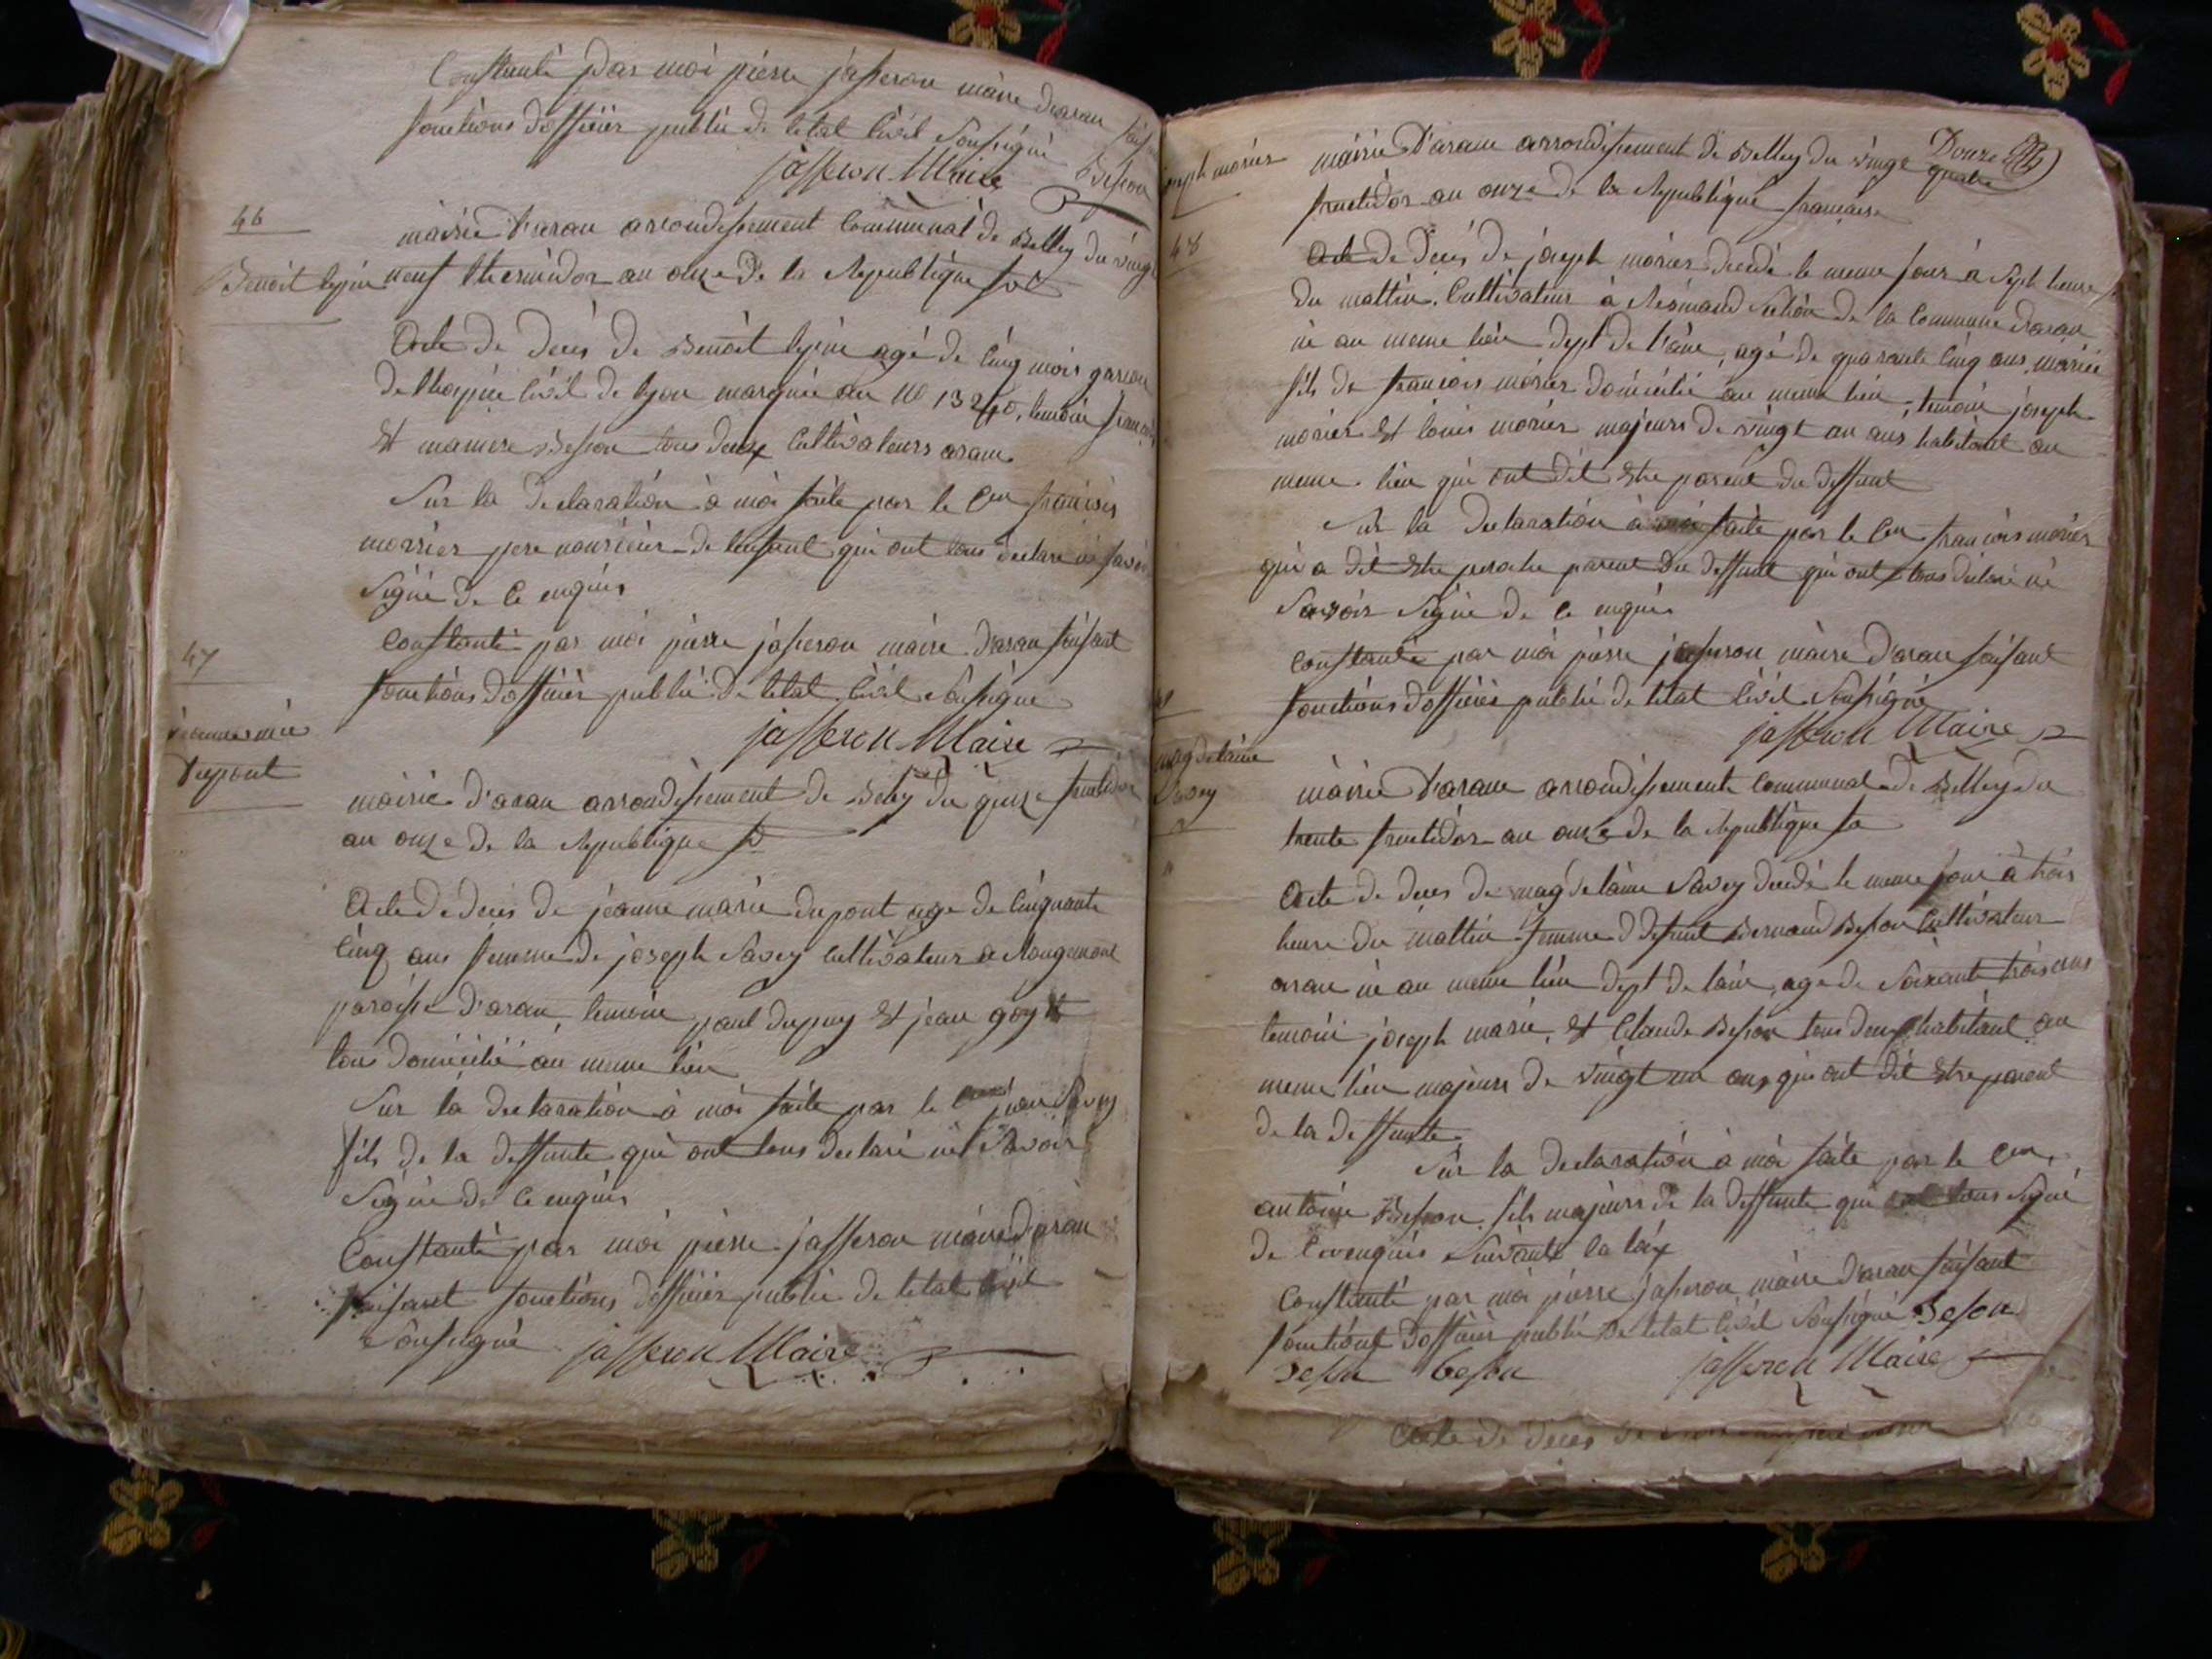 Constanté par moi pierre jasseron maire daran
fonctions dofficier public de letat civil soussigné
jasseron Maire Besson
46
Benoit lepin
mairie d'aran arrondissement communal de Belley du vingt
neuf thermidor an onze de la Republique
Acte de deces de Benoit lepin agé de cinq mois garcon
de lhospice civil de lyon marquée au No 13240, temoin francois
et Besson tous deux cultivateurs aran
Sur la declaration à moi faite par le Cen francois
morrier pere nouricier de lenfant qui ont tous declaré ne savoir
signé de ce enquis
Constanté par moi pierre jasseron maire d'aran faisant
fonctions dofficier public de letat civil soussigné
jasseron Maire
47
jeanne marie
dupont
mairie d'aran arrondissement de Beley du quinze fructidor
an onze de la Republique
Acte de deces de jeanne marie dupont age de cinquante
cinq ans femme de joseph Savey cultivateur a Rougemont
paroisse d'aran, temoin paul dupuy et jean goyet
tous domicilié au meme lieu
Sur la declaration à moi faite par le jean Savey
fils de la deffunte qui ont tous declaré ne savoir
signé de ce enquis
Constanté par moi pierre jasseron maire daran
faisant fonctions dofficier public de letat civil
soussigné jasseron Maire
joseph morier
mairie d'arane arrondissement de Belley du vingt quatre
Douze
fructidor an onze de la Republique francaise
48
Acte de deces de joseph morier decedé le meme jour à sept heure
du mattin, cultivateur à Resinand section de la commune daran
né au meme lieu dept de l'ain, agé de quarante cinq ans, marié
fils de francois morier domicilié au meme lieu, temoin joseph
morier et louis morier majeurs de vingt un ans habitant au
meme lieu qui ont dit etre parent du deffunt
Sur la declaration à moi faite par le Cen francois morier
qui a dit etre proche parent du deffunt qui ont tous declaré ne
savoir signé de ce enquis
Constanté par moi pierre jasseron maire daran faisant
fonctions dofficier public de letat civil soussigné
jasseron Maire
magdelaine
Savey
mairie d'arane arrondissement communal de Belley du
trente fructidor an onze de la Republique
Acte de deces de magdelaine Savey decedé le meme jour à trois
heure du mattin femme de defunt Bernard Besson cultivateur
arane né au meme lieu dept de lain, age de soixante trois ans
temoin joseph marie, et Claude Besson tous deux habitant au
meme lieu majeurs de vingt un ans, qui ont dit etre parent
de la deffunte
Sur la declaration à moi faite par le Cen
antoine Besson fils majeurs de la deffunte qui ont tous signé
de ce enquis suivante la loix
Constanté par moi pierre jasseron maire d'aran faisant
fonctions dofficier public de letat civil soussigné Beson
Beson beson jasseron Maire
Acte de deces de